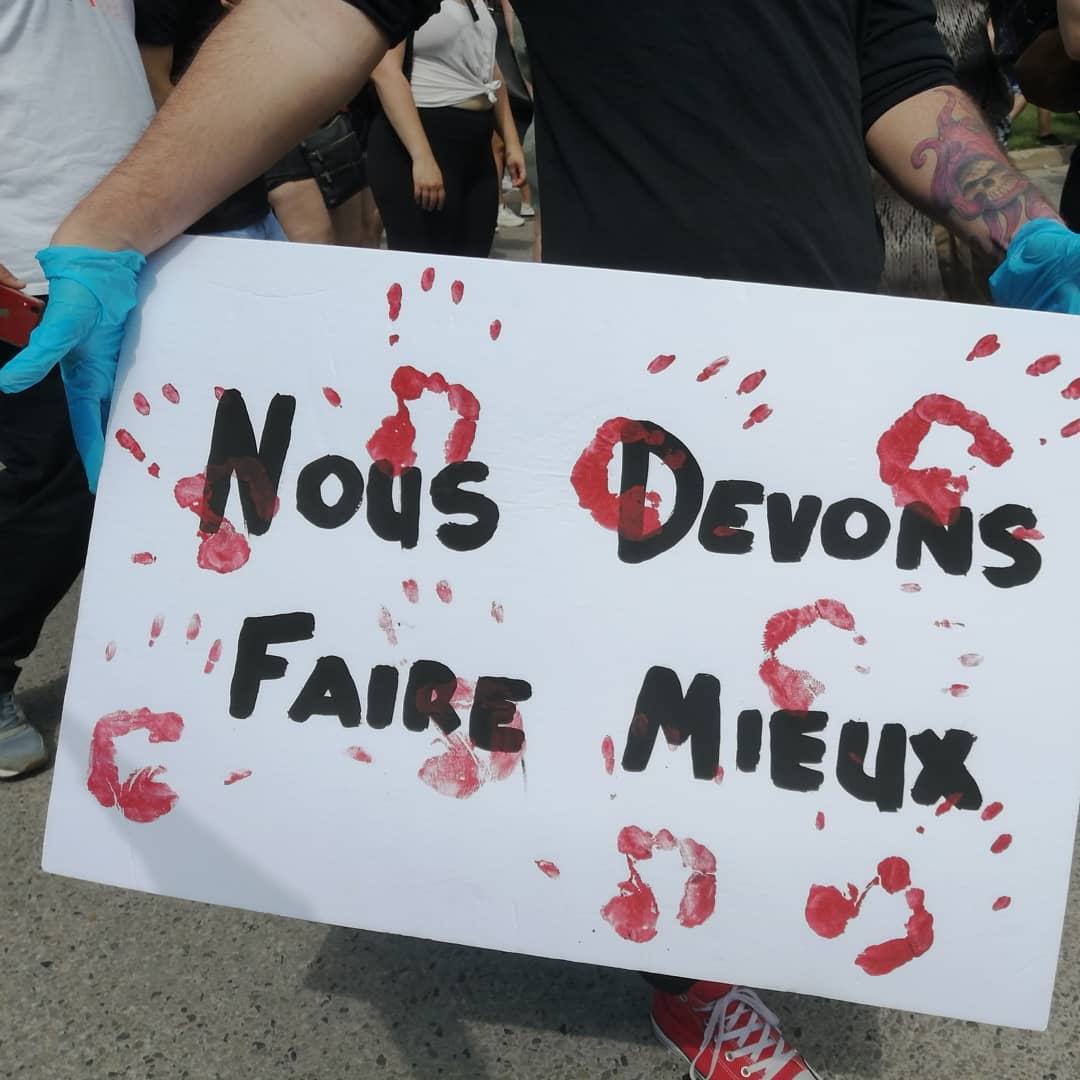 Nous Devons
Faire Mieux